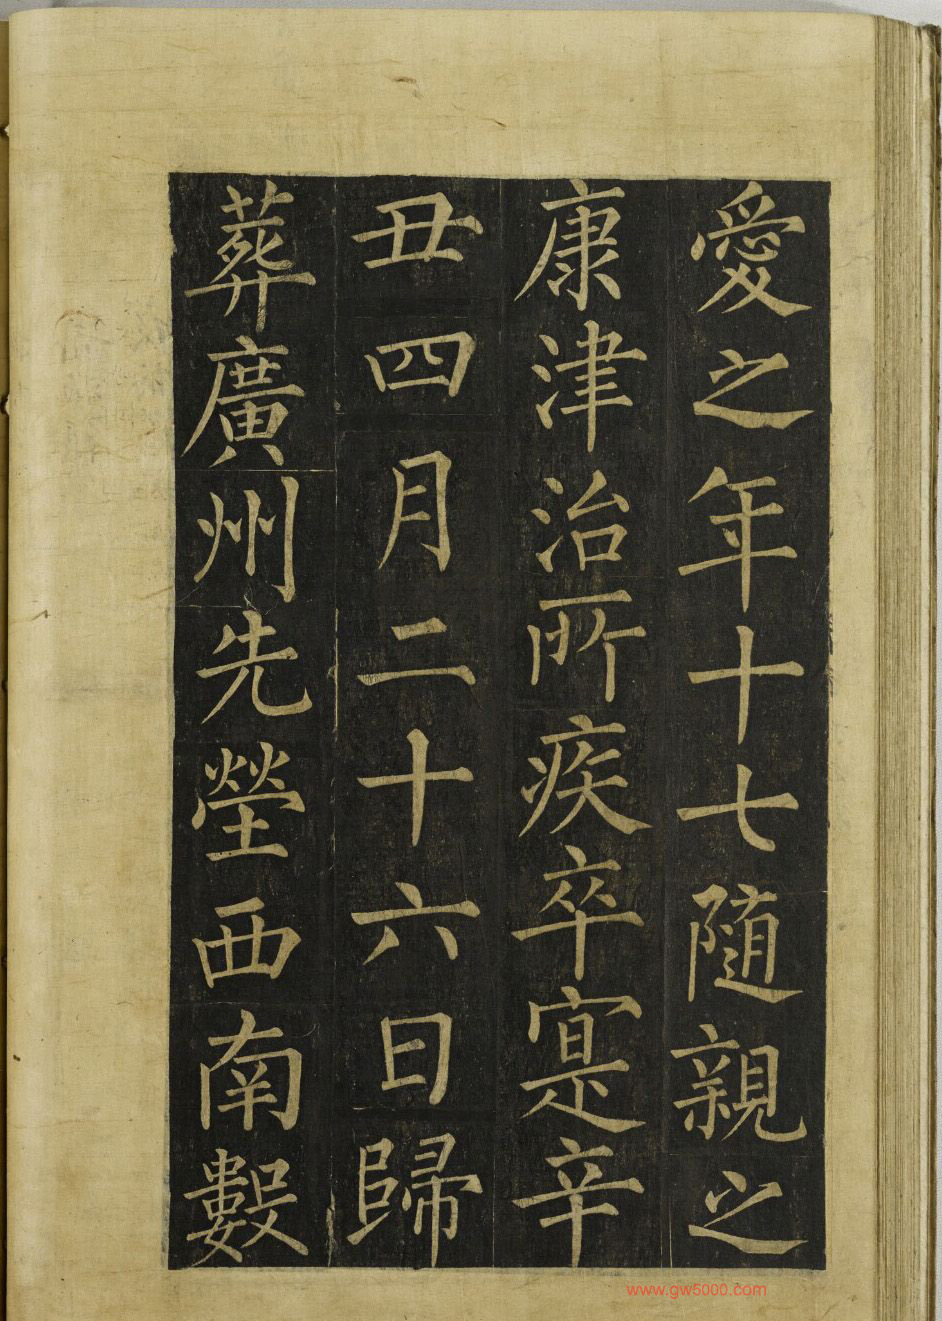 愛之年十七隨親之
康津治所疾卒寔辛
丑四月二十六日歸
葬廣州先塋西南數
www.gw5000.com